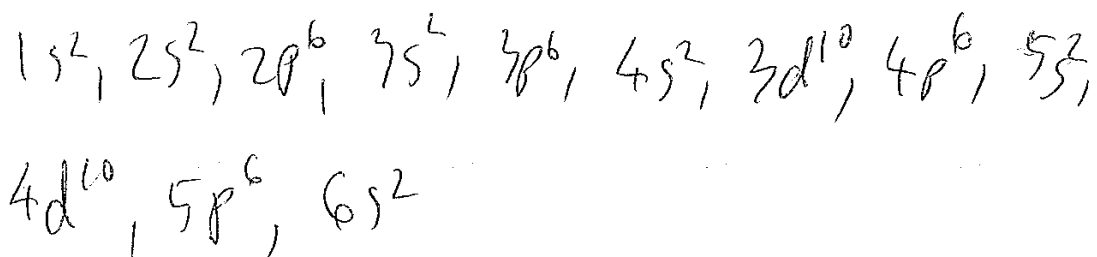 1s², 2s², 2p⁶, 3s², 3p⁶, 4s², 3d¹⁰, 4p⁶, 5s²,
4d¹⁰, 5p⁶, 6s²